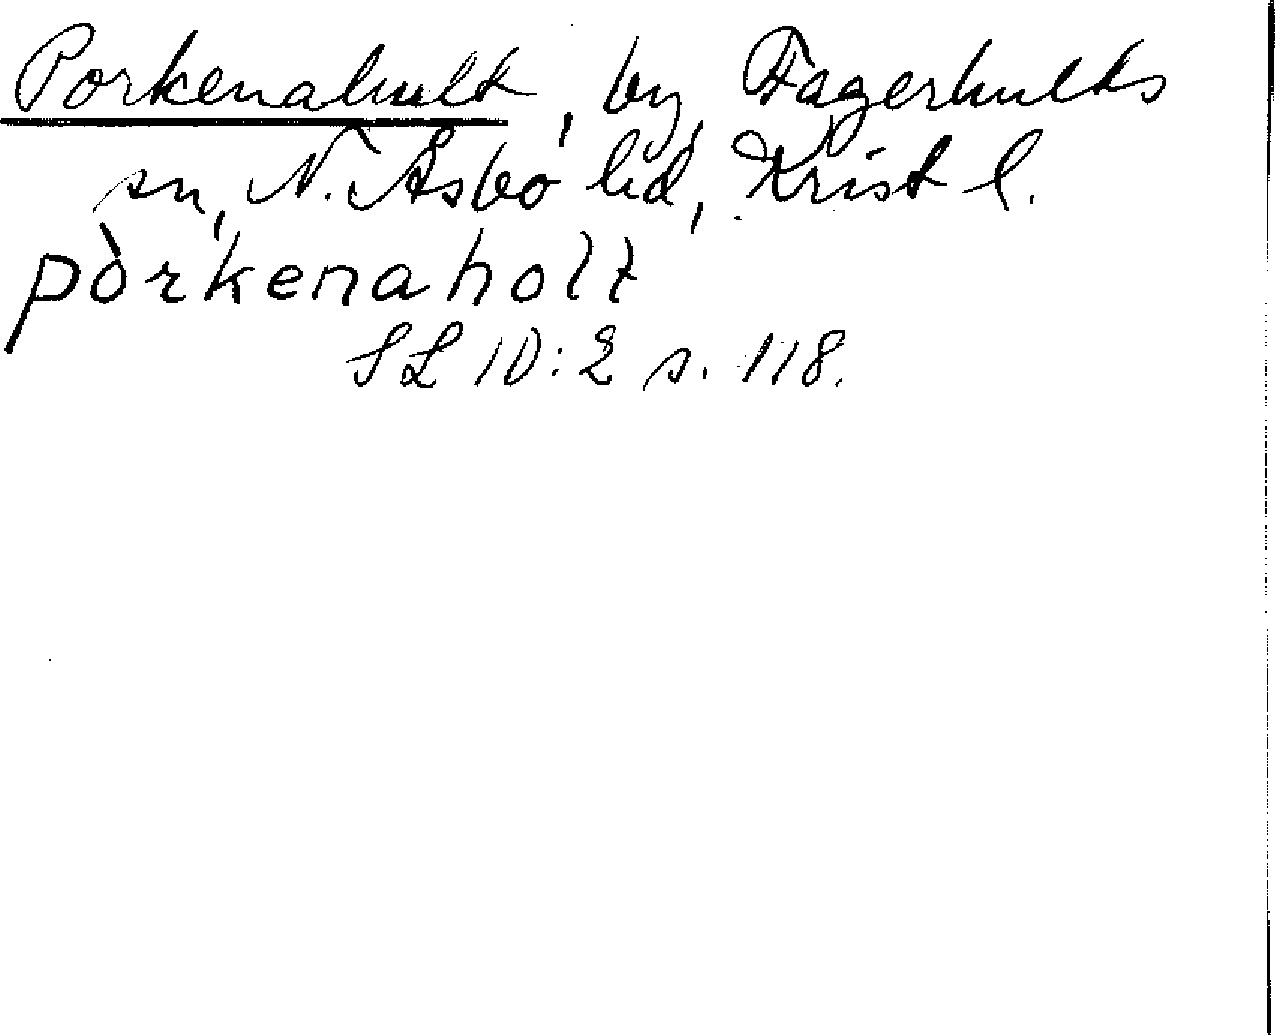 Porkenahult, by, Fagerhults
sn, N. Åsbo hd, Krist l.
pòrkenaholt
SL 10:2 s. 118.